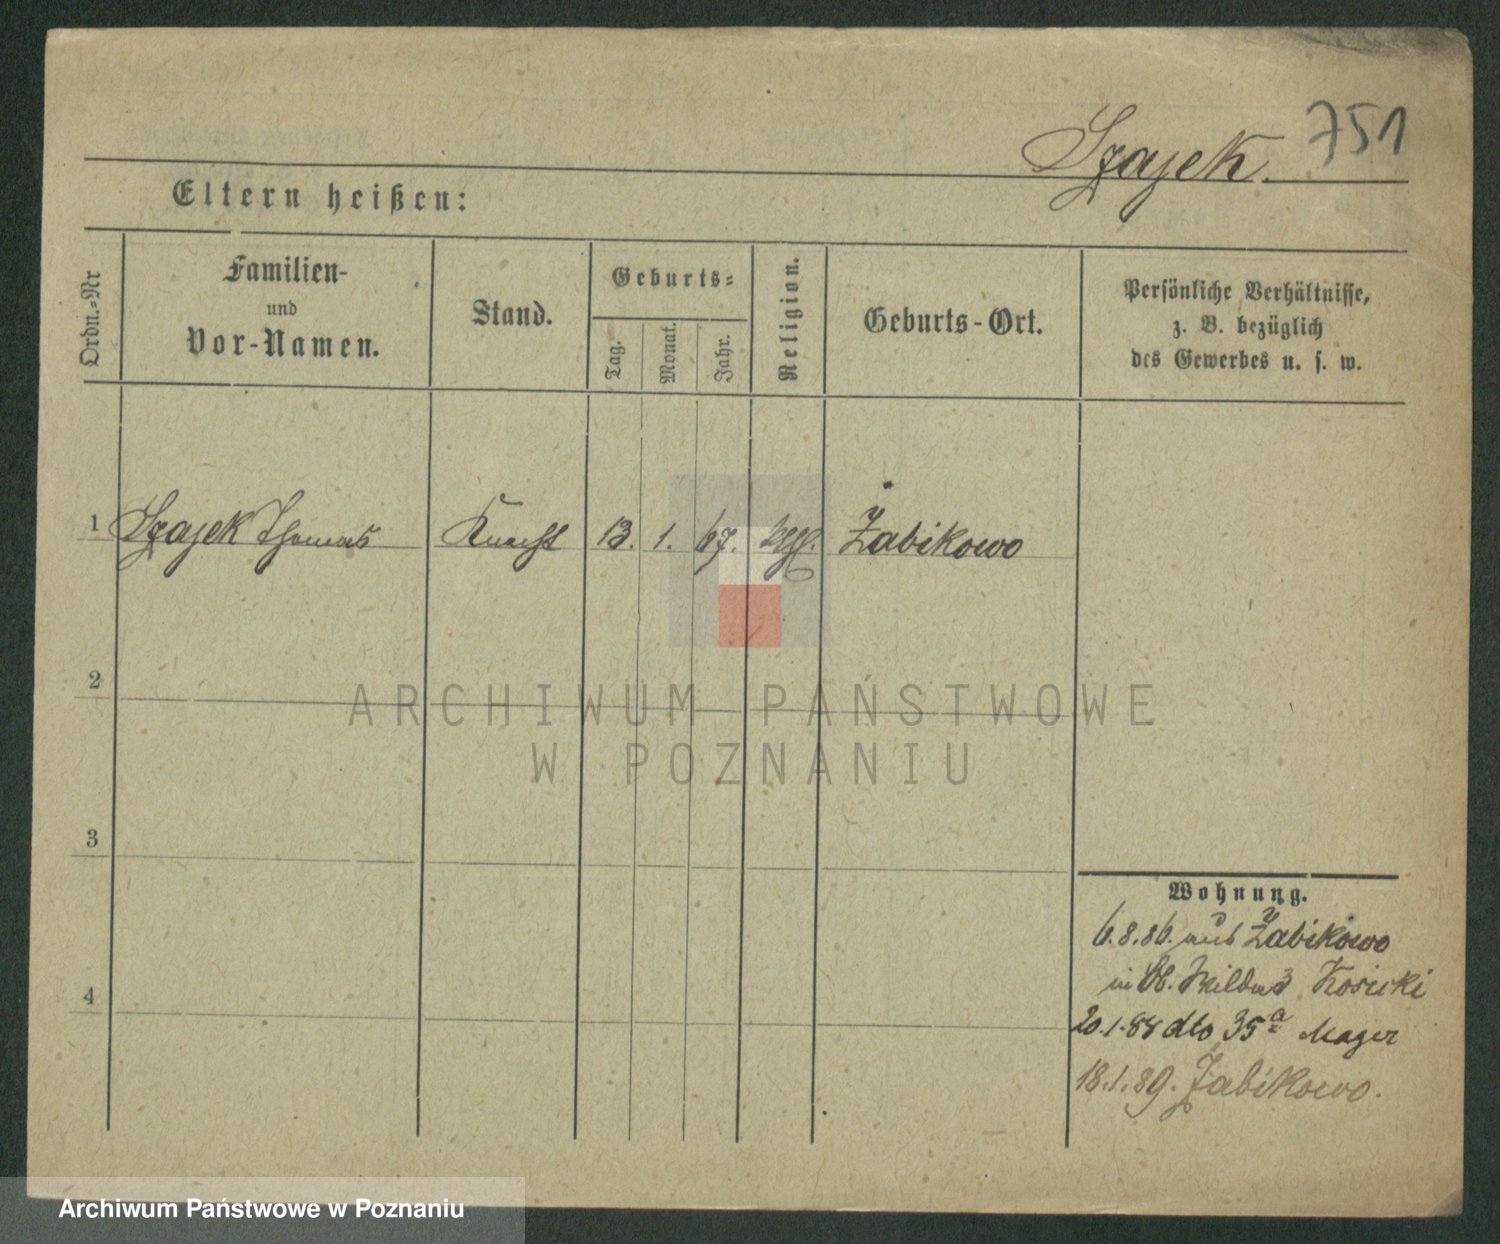 751
Szajek.
Eltern heißen:
Ordn.-Nr
Familien-
und
Vor-Namen.
Stand.
Geburts-
Tag.
Monat.
Jahr.
Religion.
Geburts-Ort.
Persönliche Verhältnisse,
z. B. bezüglich
des Gewerbes u. s. w.
1 Szajek Thomas Knecht 13. 1. 67. Żabikowo
2
3
4
ARCHIWUM PAŃSTWOWE
W POZNANIU
Wohnung.
6.8.86. aus Żabikowo
in Ob. Wilda 3 Kosicki
20.1.88 dto 35a Mager
18.1.89. Żabikowo.
Archiwum Państwowe w Poznaniu